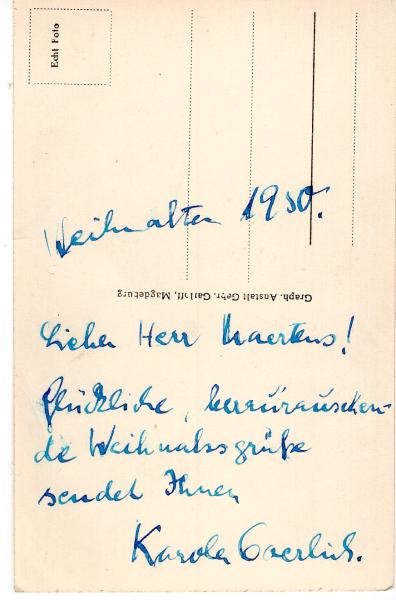 Echt Foto
Weihnachten 1950.
Graph. Anstalt Gebr. Garloff, Magdeburg
Lieber Herr Maertens!
Glückliche,
de Weihnachtsgrüße
sendet Ihnen
Karola